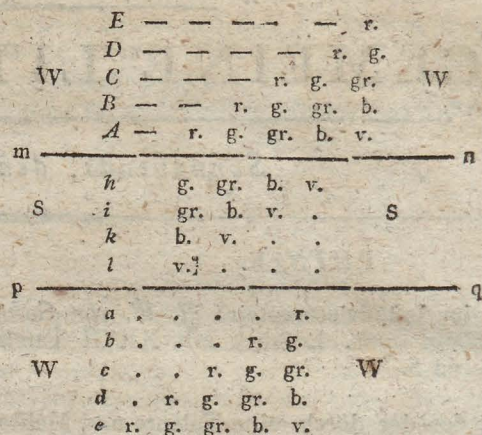 E — — — — r.
D — — — — r. g.
W C — — — r. g. gr. W
B — — r. g. gr. b.
A — r. g. gr. b. v.
m n
h g. gr. b. v.
S i gr. b. v. . S
k b. v. . .
l v. . . .
p q
a . . . . r.
b . . . r. g.
W c . . r. g. gr. W
d . r. g. gr. b.
e r. g. gr. b. v.